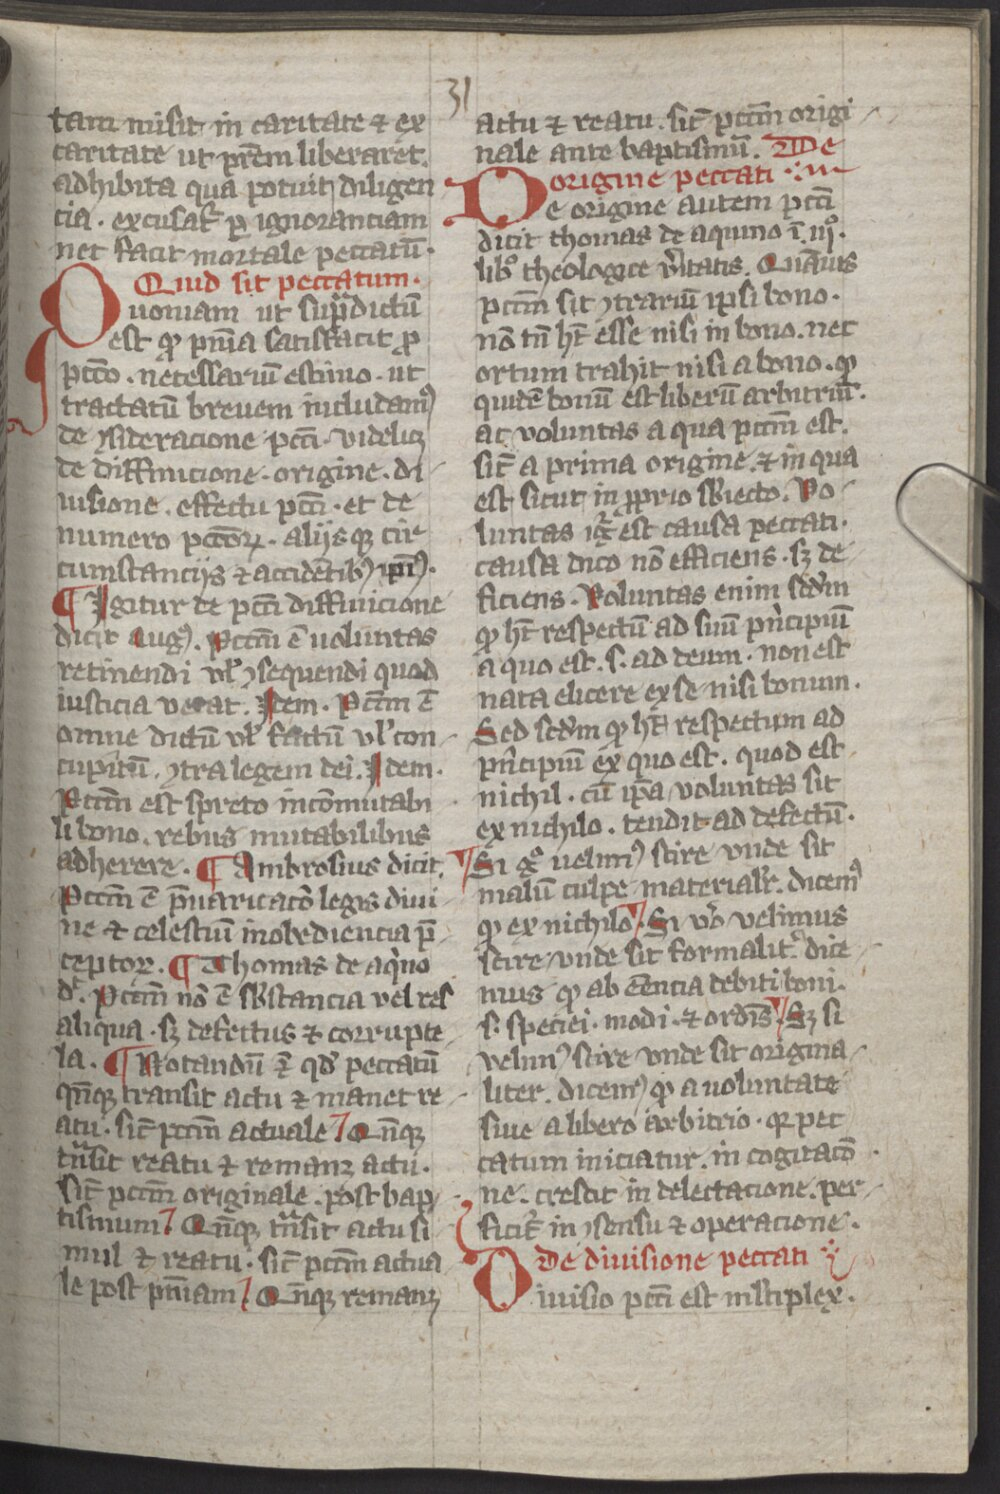 31
tam misit in caritate ⁊ ex
caritate ut pr̄em liberaret.
adhibita qua potuit diligen
cia. excusat᷑ ꝑ ignoranciam
nec facit mortale peccatū.
Quid sit peccatum.
Quoniam ut sup̄dictū
est ꝙ pn̄ia satisfacit ꝓ
pctō. necessariū estimo. ut
tractatū breuem includamꝰ
de ꝯsideracione pcti. videlicꝫ
de diffinicione. origine. di
uisione. effectu pcti. et de
numero pctōꝝ. alijsqꝫ cir
cumstancijs ⁊ accidētibꝰ ip̄iꝰ.
¶ Igitur de pcti diffinicione
dicit Augꝰ. Pctm̄ ē uoluntas
retinendi vł ꝯsequendi quod
iusticia vetat. Idem. Pctm̄ ē
omne dictū vł factū vł con
cupitū. ꝯtra legem dei. Idem.
Pctm̄ est spreto incōmutabi
li bono. rebus mutabilibus
adherere. ¶ Ambrosius dicit.
Pctm̄ ē p̄uaricacō legis diui
ne ⁊ celestiū inobediencia p̄
ceptoꝝ. ¶ Thomas de aq̇no
d᷑. Pctm̄ nō ē sb̄stancia vel res
aliqua. sꝫ defectus ⁊ corrupte
la. ¶ Notandū ē qđ peccatū
qn̄qꝫ transit actu ⁊ manet re
atu. sic̄ pctm̄ actuale Qn̄qꝫ
tn̄sit reatu ⁊ remanꝫ actu.
sic̄ pctm̄ originale. post bap
tismum Qn̄qꝫ tn̄sit actu si
mul ⁊ reatu. sic̄ pctm̄ actua
le post pn̄iam Qn̄qꝫ remanꝫ
actu ⁊ reatu. sic̄ pctm̄ origi
nale ante baptismū. De
origine peccati
De origine autem pcti
dicit thomas de aquino ī iijͦ.
libͦ theologice v̄itatis. Quāuis
pctm̄ sit ꝯtrariū ipsi bono.
nō tn̄ hꝫ esse nisi in bono. nec
ortum trahit nisi a bono. ꝙ
quidē bonū est liberū arbitriū.
ac voluntas a qua pctm̄ est.
sic̄ a prima origine. ⁊ in qua
est sicut in ꝓprio sb̄iecto. Vo
luntas igͬ est causa peccati.
causa dico nō efficiens. sꝫ de
ficiens. Voluntas enim scdm̄
ꝙ hꝫ respectū ad suū pͥncipiū
a quo est. s. ad deum. non est
nata elicere ex se nisi bonum.
Sed scdm̄ ꝙ hꝫ respectum ad
pͥncipiū ex quo est. quod est
nichil. cū ip̄a voluntas sit
ex nichilo. tendit ad defectū.
Si gͦ uelimꝰ scire vnde sit
malū culpe materialr̄. dicemꝰ
ꝙ ex nichilo. Si v̊o velimus
scire vnde sit formalit᷑. dice
mus ꝙ ab c̄encia debiti boni.
s. speciei. modi. ⁊ ordīs. Sꝫ si
velimꝰ scire vnde sit origina
liter. dicemꝰ ꝙ a uoluntate
siue a libero arbitrio. qꝛ pec
catum iniciatur. in cogitacō
ne. crescit in delectacione. per
ficit᷑ in ꝯsensu ⁊ operacione.
De diuisione peccati
Diuisio pcti est ml̄tiplex.